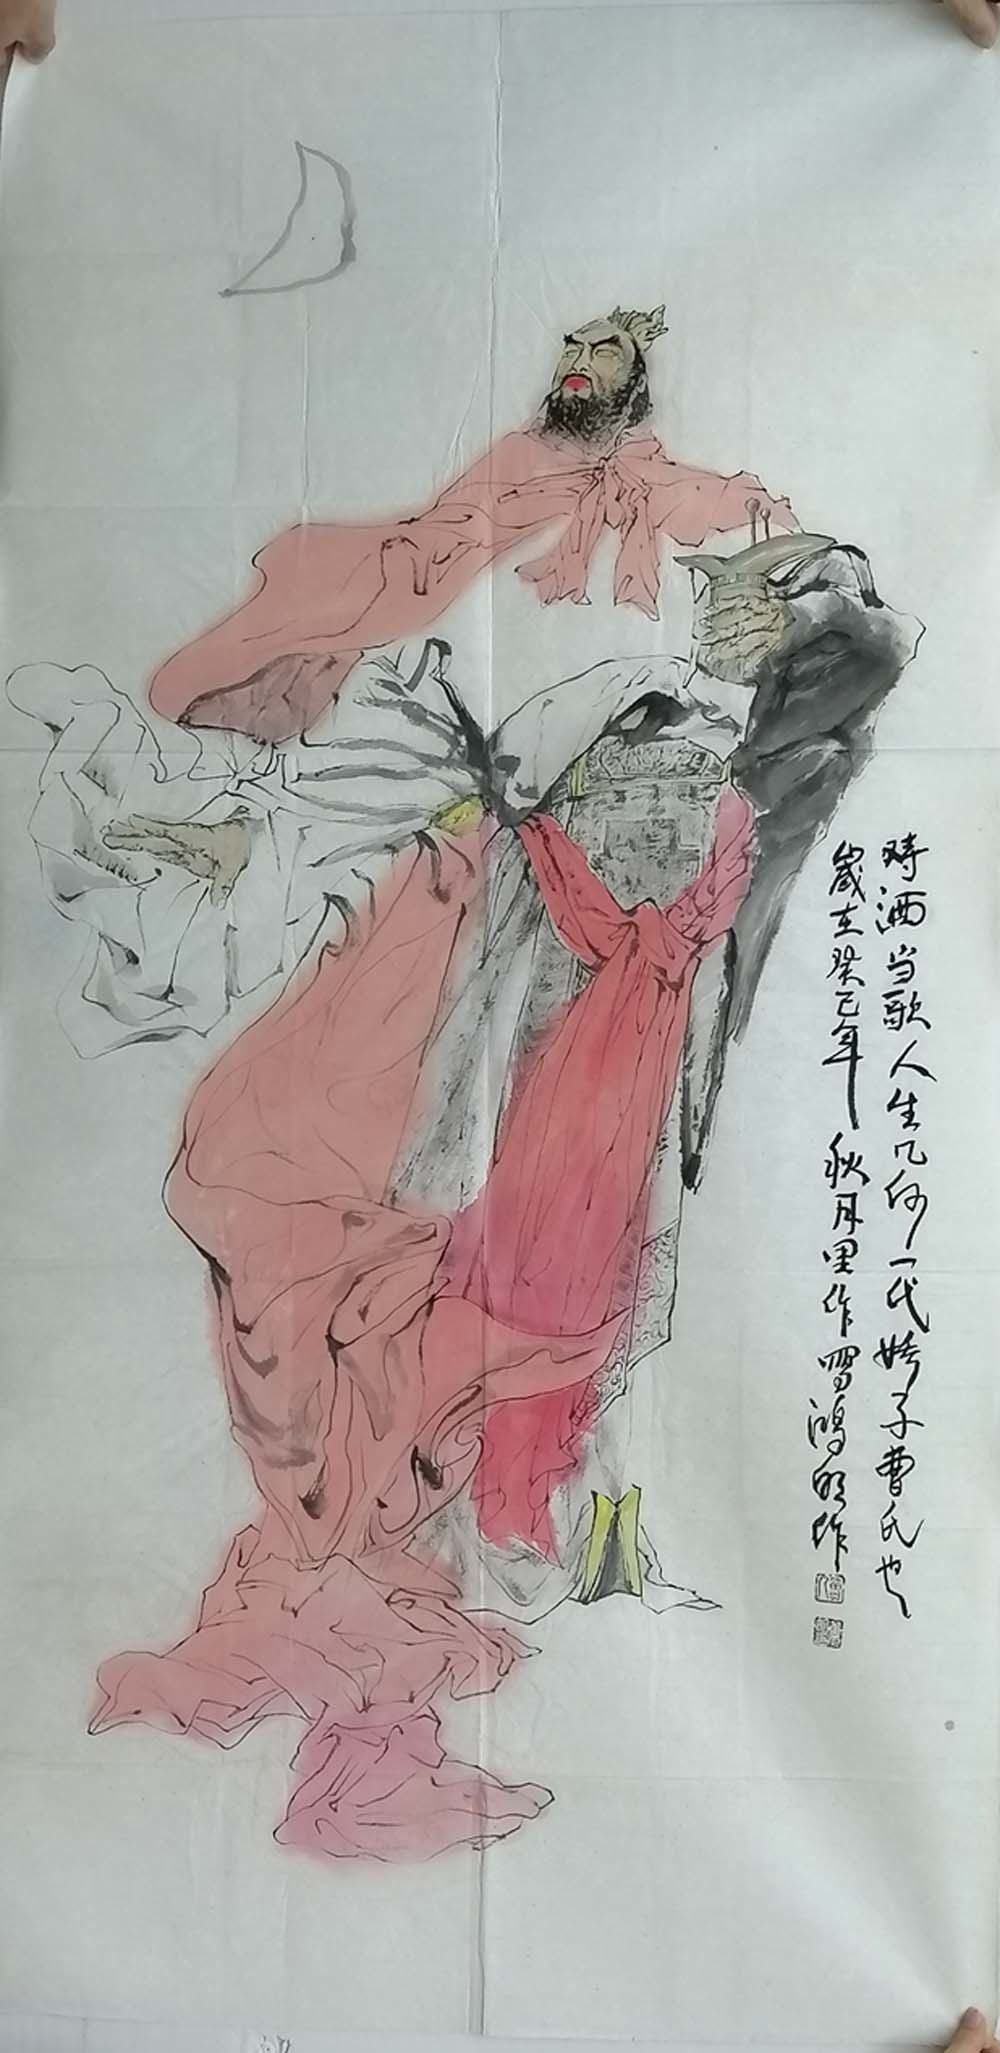 时洒当歌人生几何一代娇子曹氏也
岁在癸巳年秋月里作 鸿明作